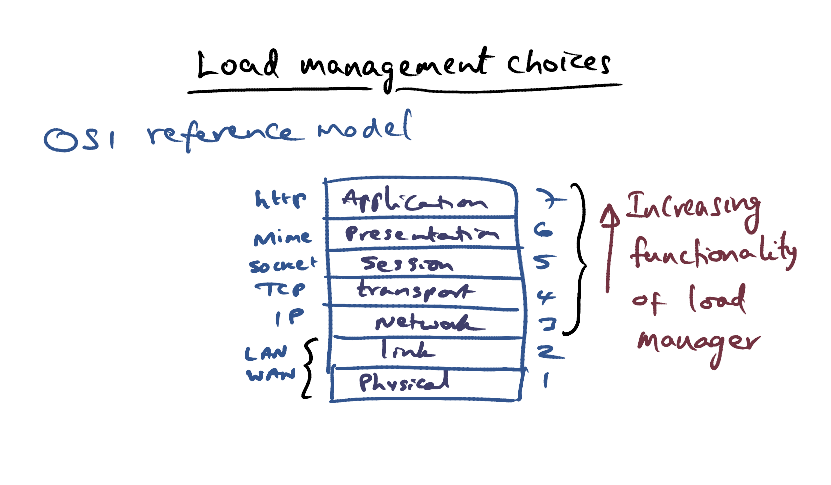 Load management choices
OSI reference model
http Application 7
Mime Presentation 6
Socket Session 5
TCP transport 4
IP Network 3
LAN link 2
WAN Physical 1
Increasing
functionality
of load
manager